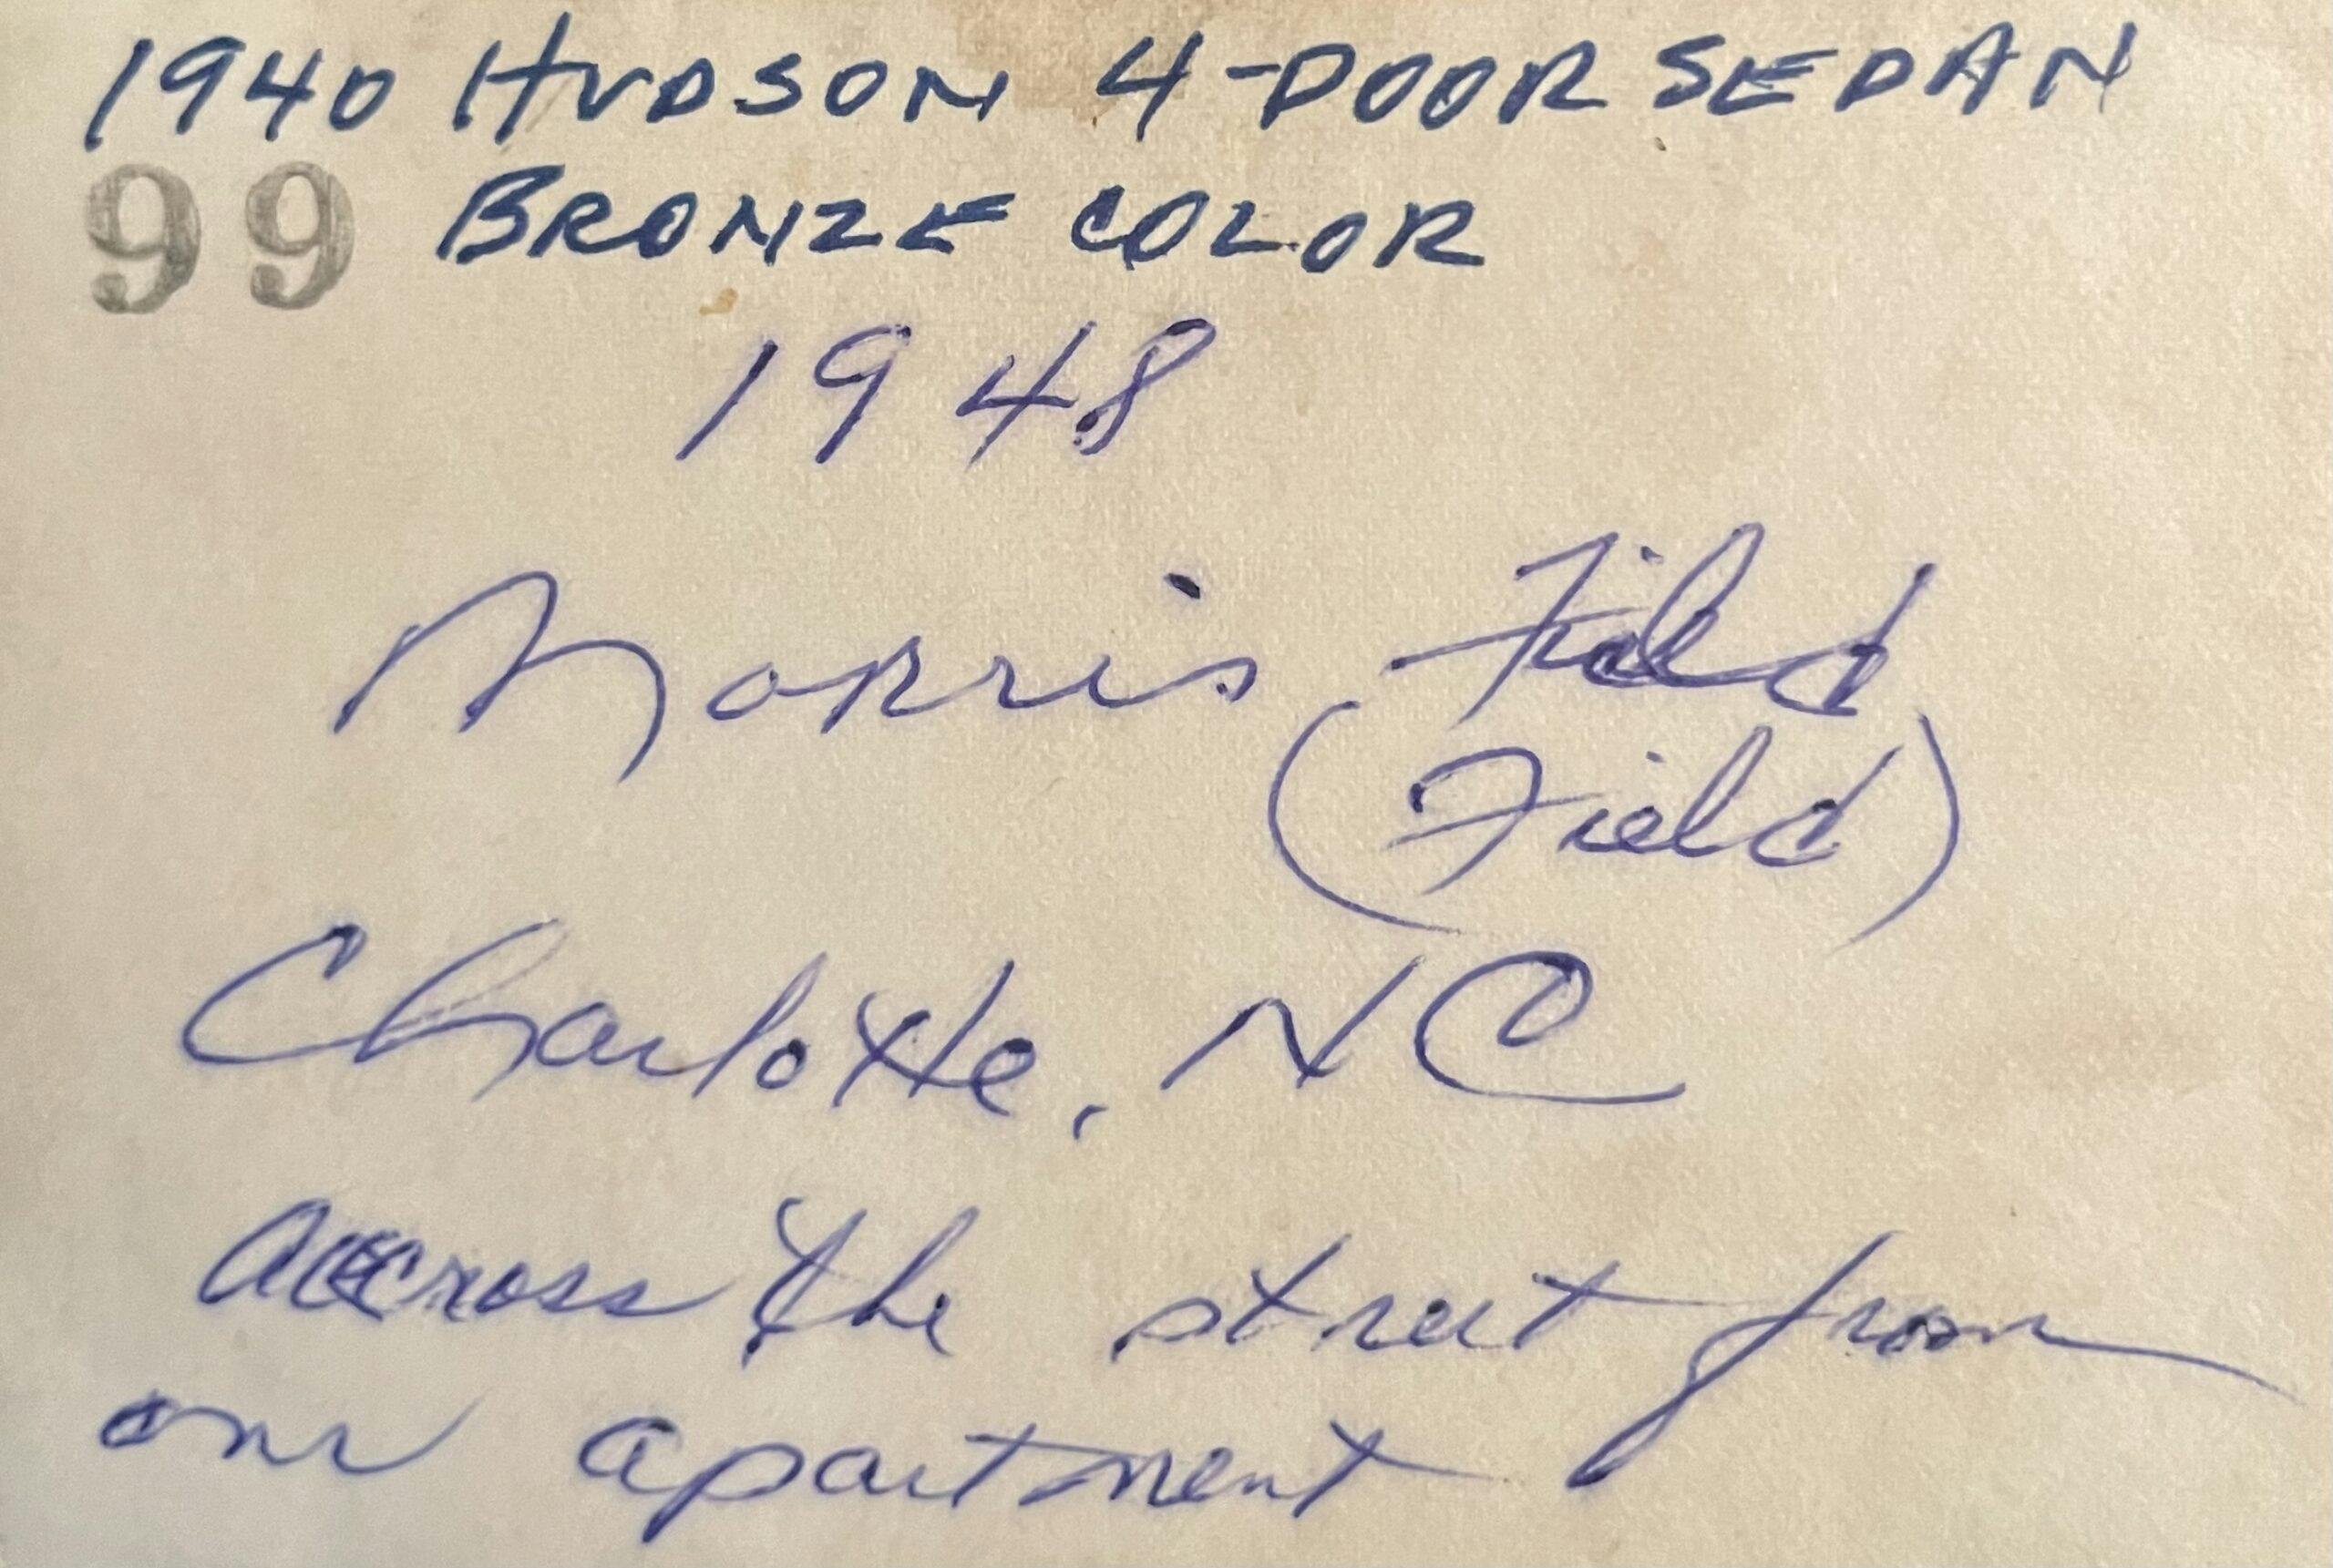 1940 HUDSON 4-DOOR SEDAN
99 BRONZE COLOR
1948
Morris Field
(Field)
Charlotte, NC
across the street from
our apartment